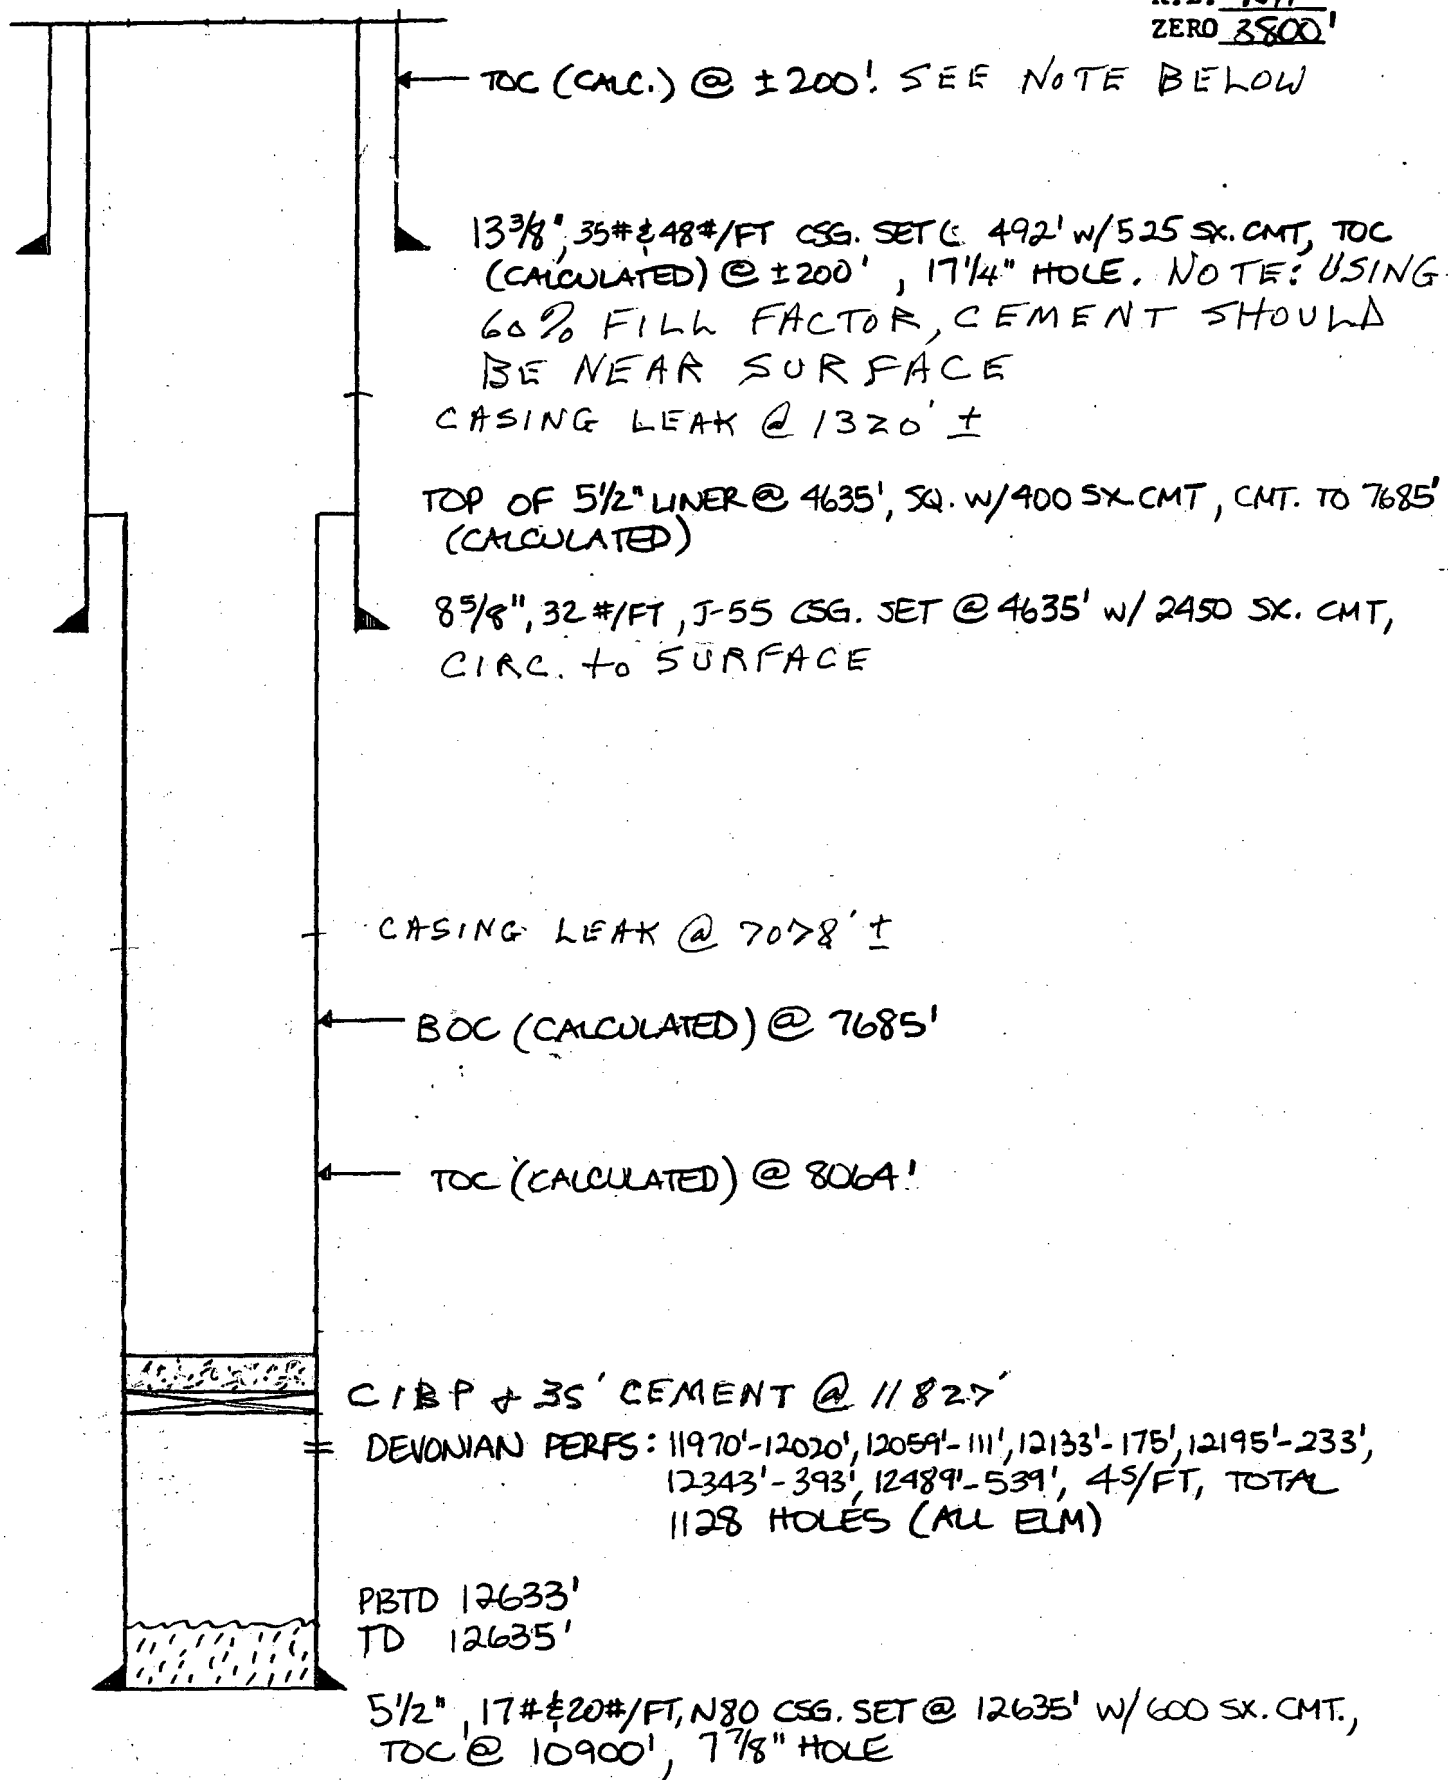 ZERO 3800'
TOC (CALC.) @ ±200'. SEE NOTE BELOW
13 3/8", 35# & 48#/FT CSG. SET @ 492' W/525 SX. CMT, TOC
(CALCULATED) @ ±200', 17 1/4" HOLE. NOTE: USING
60% FILL FACTOR, CEMENT SHOULD
BE NEAR SURFACE
CASING LEAK @ 1320' ±
TOP OF 5 1/2" LINER @ 4635', SQ. W/400 SX CMT, CMT. TO 7685'
(CALCULATED)
8 5/8", 32 #/FT, J-55 CSG. SET @ 4635' W/ 2450 SX. CMT,
CIRC. to SURFACE
CASING LEAK @ 7078' ±
BOC (CALCULATED) @ 7685'
TOC (CALCULATED) @ 8064'
CIBP + 35' CEMENT @ 11827'
DEVONIAN PERFS: 11970'-12020', 12059'-111', 12133'-175', 12195'-233',
12343'-393', 12489'-539', 4S/FT, TOTAL
1128 HOLES (ALL ELM)
PBTD 12633'
TD 12635'
5 1/2", 17# & 20#/FT, N80 CSG. SET @ 12635' W/600 SX. CMT.,
TOC @ 10900', 7 7/8" HOLE